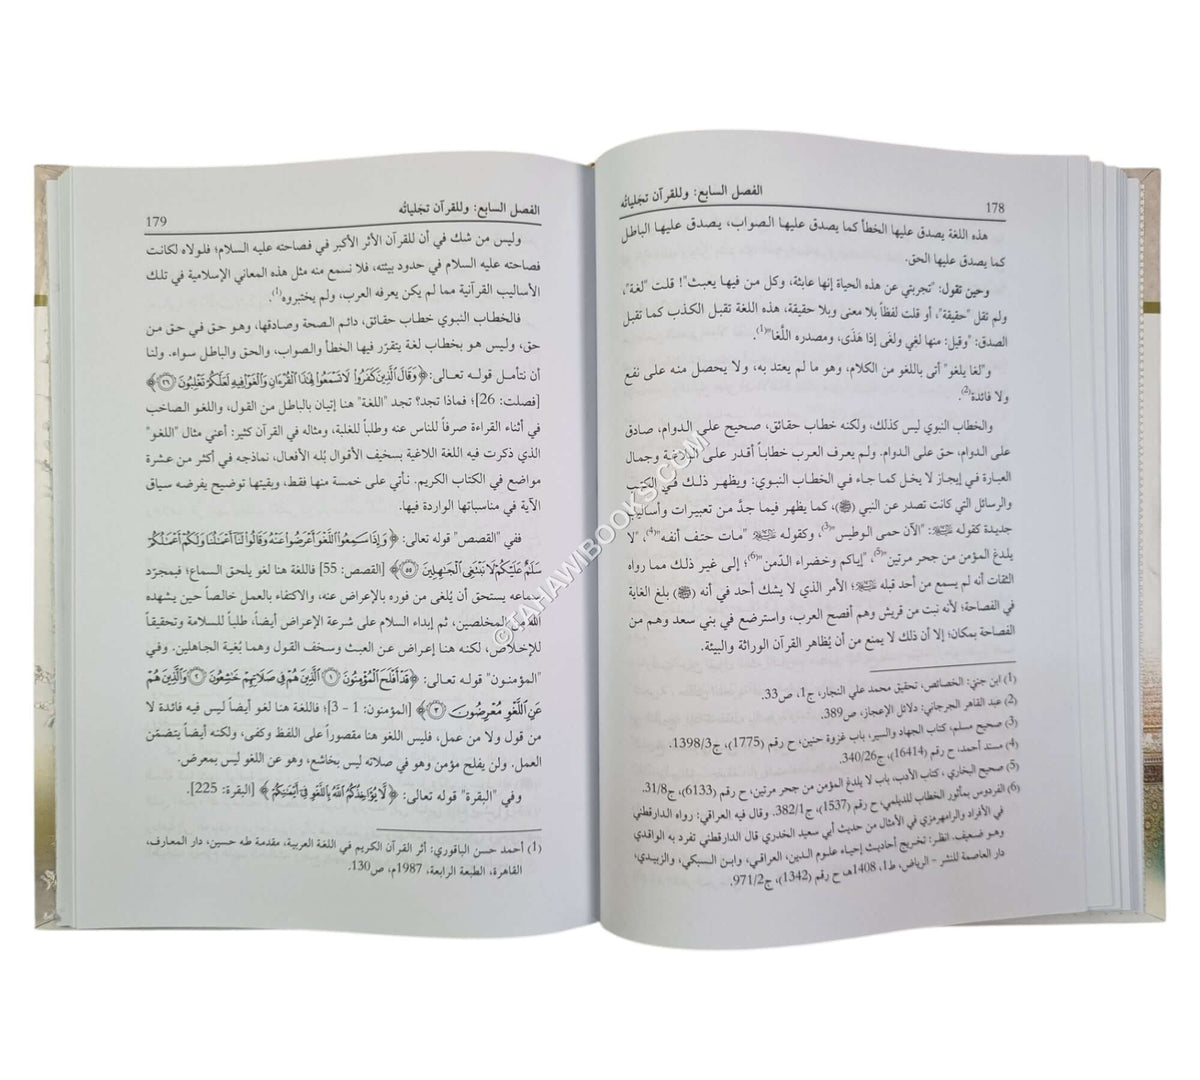 178
الفصل السابع: وللقرآن تجَلياتُه
هذه اللغة يصدق عليها الخطأ كما يصدق عليها الصواب، يصدق عليها الباطل
كما يصدق عليها الحق.
وحين تقول: "تجربتي عن هذه الحياة إنها عابثة، وكل من فيها يعبث"! قلت "لغة"،
ولم تقل "حقيقة"، أو قلت لفظاً بلا معنى وبلا حقيقة، هذه اللغة تقبل الكذب كما تقبل
الصدق: "وقيل: منها لغي ولغى إذا هَذَى، ومصدره اللَّغا"(1).
و"لغا يلغو" أتى باللغو من الكلام، وهو ما لم يعتد به، ولا يحصل منه على نفع
ولا فائدة(2).
والخطاب النبوي ليس كذلك، ولكنه خطاب حقائق، صحيح على الدوام، صادق
على الدوام، حق على الدوام. ولم يعرف العرب خطاباً أقدر على البلاغة وجمال
العبارة في إيجاز لا يخل كما جاء في الخطاب النبوي: ويظهر ذلك في الكتب
والرسائل التي كانت تصدر عن النبي (ﷺ)، كما يظهر فيما جدَّ من تعبيرات وأساليب
جديدة كقوله ﷺ: "الآن حمى الوطيس"(3)، وكقوله ﷺ "مات حتف أنفه"(4)، "لا
يلدغ المؤمن من جحر مرتين"(5)، "إياكم وخضراء الدّمن"(6)؛ إلى غير ذلك مما رواه
الثقات أنه لم يسمع من أحد قبله ﷺ؛ الأمر الذي لا يشك أحد في أنه (ﷺ) بلغ الغاية
في الفصاحة؛ لأنه نبت من قريش وهم أفصح العرب، واسترضع في بني سعد وهم من
الفصاحة بمكان؛ إلا أن ذلك لا يمنع من أن يُظاهر القرآن الوراثة والبيئة.
(1) ابن جني: الخصائص، تحقيق محمد علي النجار، ج1، ص33.
(2) عبد القاهر الجرجاني: دلائل الإعجاز، ص389.
(3) صحيح مسلم، كتاب الجهاد والسير، باب غزوة حنين؛ ح رقم (1775)، ج1398/3.
(4) مسند أحمد، ح رقم (16414)، ج340/26.
(5) صحيح البخاري، كتاب الأدب، باب لا يلدغ المؤمن من جحر مرتين، ح رقم (6133)، ج31/8.
(6) الفردوس بمأثور الخطاب للديلمي، ح رقم (1537)، ج382/1. وقال فيه العراقي: رواه الدارقطني
في الأفراد والرامهرمزي في الأمثال من حديث أبي سعيد الخدري قال الدارقطني تفرد به الواقدي
وهو ضعيف. انظر: تخريج أحاديث إحياء علوم الدين، العراقي، وابن السبكي، والزبيدي،
دار العاصمة للنشر – الرياض، ط1، 1408هـ ح رقم (1342)، ج971/2.
الفصل السابع: وللقرآن تجَلياتُه
179
وليس من شك في أن للقرآن الأثر الأكبر في فصاحته عليه السلام؛ فلولاه لكانت
فصاحته عليه السلام في حدود بيئته، فلا نسمع منه مثل هذه المعاني الإسلامية في تلك
الأساليب القرآنية مما لم يكن يعرفه العرب، ولم يختبروه(1).
فالخطاب النبوي خطاب حقائق، دائم الصحة وصادقها، وهو حق في حق من
حق، وليس هو بخطاب لغة يتقرّر فيها الخطأ والصواب، والحق والباطل سواء. ولنا
أن نتأمل قوله تعالى: ﴿وَقَالَ الَّذِينَ كَفَرُوا لَا تَسْمَعُوا لِهَٰذَا الْقُرْءَانِ وَالْغَوْا فِيهِ لَعَلَّكُمْ تَغْلِبُونَ ٢٦﴾
[فصلت: 26]؛ فماذا تجد؟ تجد "اللغة" هنا إتيان بالباطل من القول، واللغو الصاخب
في أثناء القراءة صرفاً للناس عنه وطلباً للغلبة، ومثاله في القرآن كثير: أعني مثال "اللغو"
الذي ذكرت فيه اللغة اللاغية بسخيف الأقوال بُله الأفعال، نماذجه في أكثر من عشرة
مواضع في الكتاب الكريم. نأتي على خمسة منها فقط، وبقيتها توضيح يفرضه سياق
الآية في مناسباتها الواردة فيها.
ففي "القصص" قوله تعالى: ﴿وَإِذَا سَمِعُوا اللَّغْوَ أَعْرَضُوا عَنْهُ وَقَالُوا لَنَا أَعْمَالُنَا وَلَكُمْ أَعْمَالُكُمْ
سَلَامٌ عَلَيْكُمْ لَا نَبْتَغِي الْجَاهِلِينَ ٥٥﴾ [القصص: 55] فاللغة هنا لغو يلحق السماع؛ فبمجرّد
سماعه يستحق أن يُلغى من فوره بالإعراض عنه، والاكتفاء بالعمل خالصاً حين يشهده
الله من المخلصين، ثم إبداء السلام على شرعة الإعراض أيضاً، طلباً للسلامة وتحقيقاً
للإخلاص، لكنه هنا إعراض عن العبث وسخف القول وهما بُغية الجاهلين. وفي
"المؤمنون" قوله تعالى: ﴿قَدْ أَفْلَحَ الْمُؤْمِنُونَ ١ الَّذِينَ هُمْ فِي صَلَاتِهِمْ خَاشِعُونَ ٢ وَالَّذِينَ هُمْ
عَنِ اللَّغْوِ مُعْرِضُونَ ٣﴾ [المؤمنون: 1 - 3]؛ فاللغة هنا لغو أيضاً ليس فيه فائدة لا
من قول ولا من عمل، فليس اللغو هنا مقصوراً على اللفظ وكفى، ولكنه أيضاً يتضمّن
العمل. ولن يفلح مؤمن وهو في صلاته ليس بخاشع، وهو عن اللغو ليس بمعرض.
وفي "البقرة" قوله تعالى: ﴿لَّا يُؤَاخِذُكُمُ اللَّهُ بِاللَّغْوِ فِي أَيْمَانِكُمْ﴾ [البقرة: 225].
(1) أحمد حسن الباقوري: أثر القرآن الكريم في اللغة العربية، مقدمة طه حسين، دار المعارف،
القاهرة، الطبعة الرابعة، 1987م، ص130.
©TAHAWIBOOKS.COM